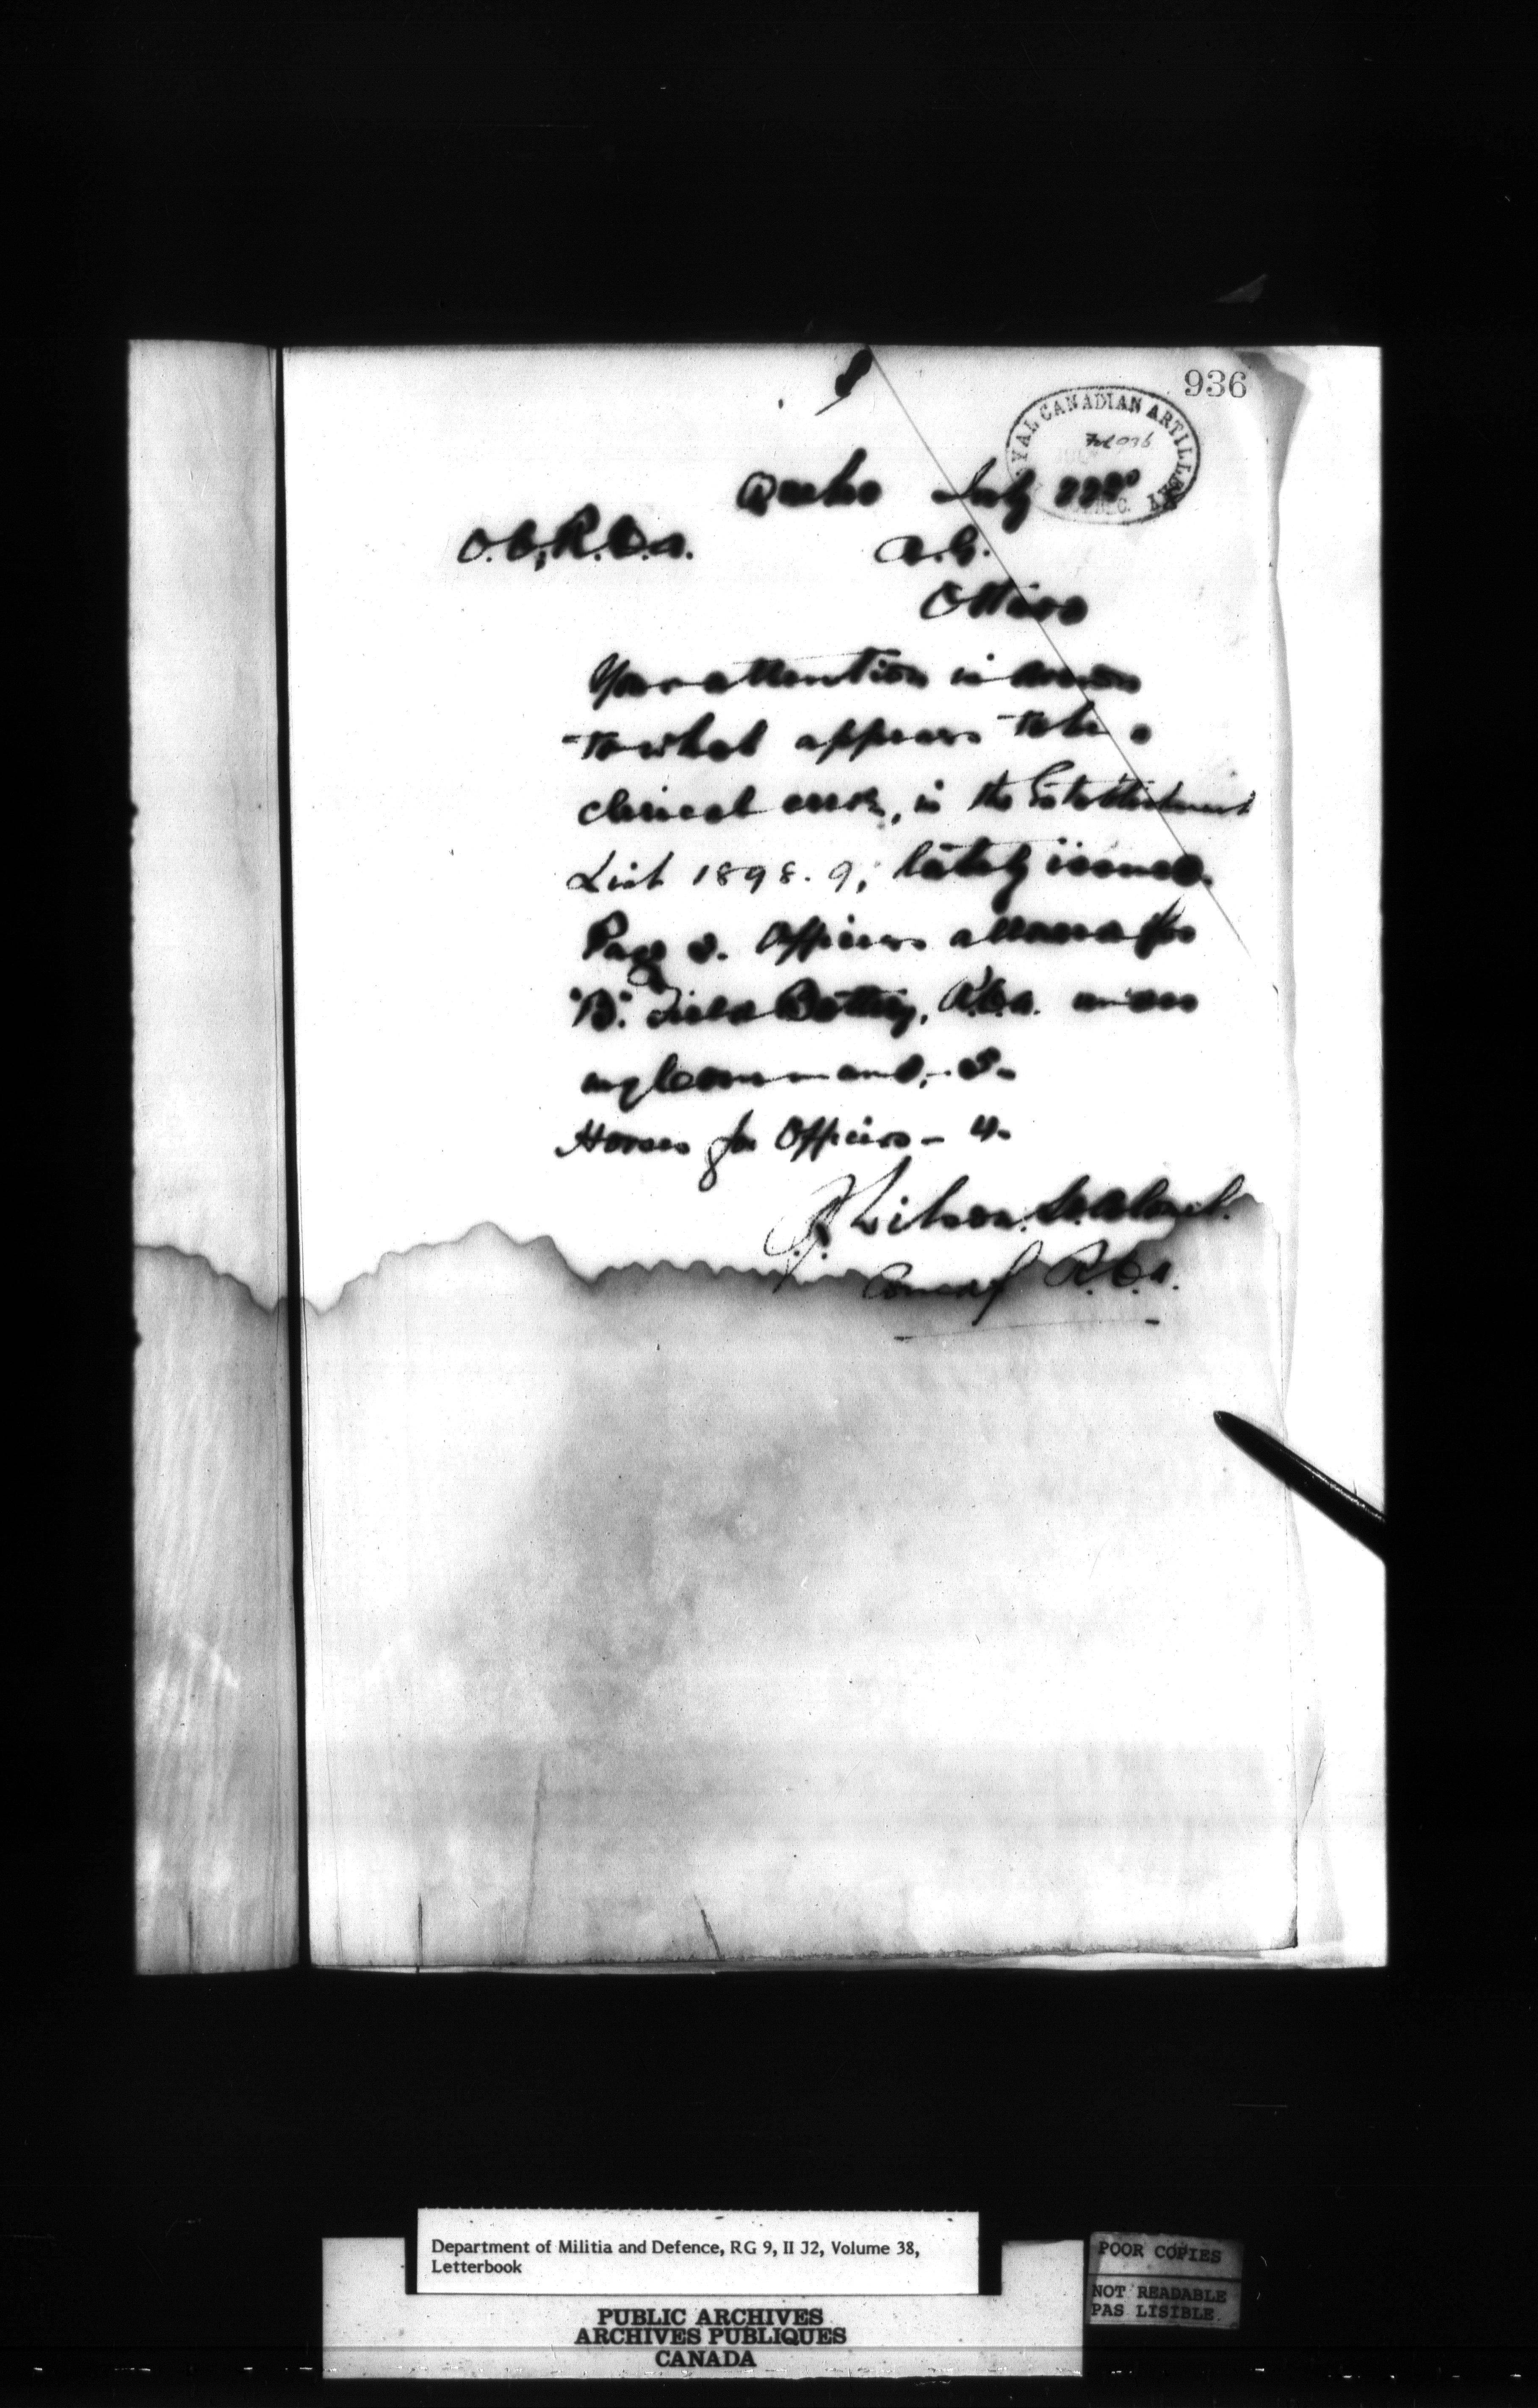 936
ROYAL CANADIAN ARTILLERY
Fol 936
Quebec July 22nd
O.C. R.C.A. A.G.
Ottawa
Your attention is drawn
to what appears to be a
clerical error, in the Establishment
List 1898.9, lately issued.
Page 8. Officers allowed for
"B" Field Battery, R.C.A. under
my command,
Horses for Officers - 4.
J.F. Wilson. Lt. Colonel.
Comdg R.C.A.
Department of Militia and Defence, RG 9, II J2, Volume 38,
Letterbook
PUBLIC ARCHIVES
ARCHIVES PUBLIQUES
CANADA
POOR COPIES
NOT READABLE
PAS LISIBLE